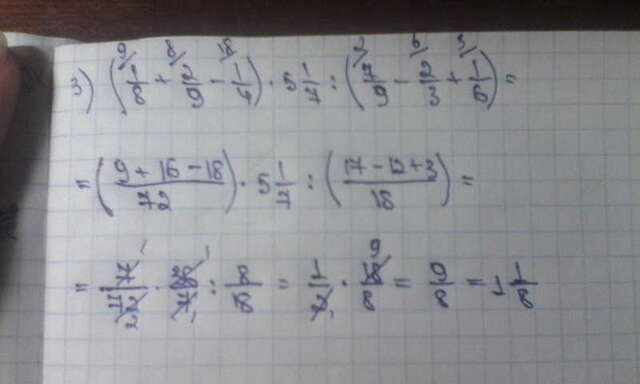 3) (⁹⁄1/8 + ⁸⁄2/9 − ¹⁸⁄1/4) · 5 1/7 : (²⁄7/9 − ⁶⁄2/3 + ³⁄1/6) =
= ((9 + 16 − 18)/72) · 5 1/7 : ((17 − 12 + 3)/18) =
= 7/72 · 36/7 : 8/18 = 1/2 · 18/8 = 9/8 = 1 1/8